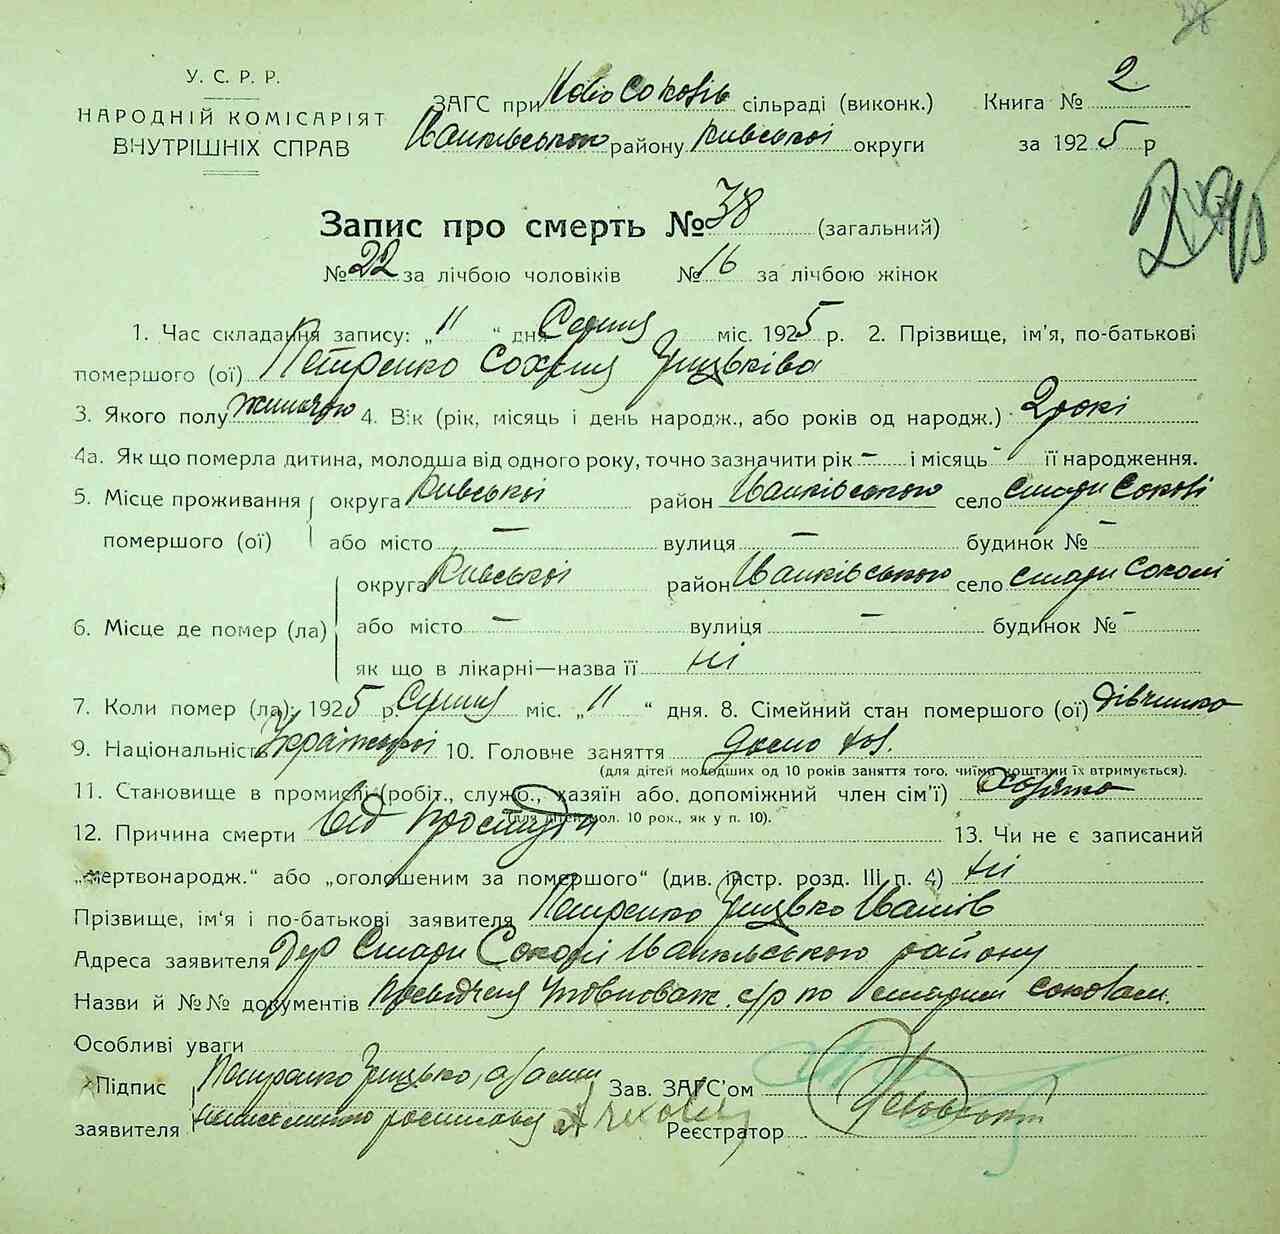 38
У. С. Р. Р.
НАРОДНІЙ КОМІСАРІЯТ
ВНУТРІШНІХ СПРАВ
ЗАГС при Ново Соколів сільраді (виконк.)
Іванківського району Київської округи
Книга № 2
за 1925 р
Запис про смерть № 38 (загальний)
№ 22 за лічбою чоловіків № 16 за лічбою жінок
1. Час складання запису: „ 11 “ дня Серпня міс. 1925 р. 2. Прізвище, ім'я, по-батькові
помершого (ої) Петренко Сохвия Грицьківа
3. Якого полу жиночого 4. Вік (рік, місяць і день народж., або років од народж.) 2 рокі
4а. Як що померла дитина, молодша від одного року, точно зазначити рік – і місяць - її народження.
5. Місце проживання округа Київської район Іванківського село Стари Соколі
помершого (ої) або місто — вулиця — будинок № –
округа Київської район Іванківського село Стари Соколі
6. Місце де помер (ла) або місто — вулиця — будинок № –
як що в лікарні—назва її ні
7. Коли помер (ла): 1925 р. Серпня міс. „ 11 “ дня. 8. Сімейний стан помершого (ої) дівчинка
9. Національність Української 10. Головне заняття
(для дітей молодших од 10 років заняття того, чиїми коштами їх втримується).
11. Становище в промислі (робіт., служб., хазяїн або. допоміжний член сім'ї)
(для дітей мол. 10 рок., як у п. 10).
12. Причина смерти Від простуди 13. Чи не є записаний
„мертвонародж.“ або „оголошеним за помершого“ (див. інстр. розд. III п. 4) ні
Прізвище, ім'я і по-батькові заявителя Петренко Грицько Іванів
Адреса заявителя Дер Стари Соколі Іванківського району
Назви й №№ документів с/р по старим соколам.
Особливі уваги
Підпис Петренко Грицько, а за
заявителя неписьменного росписався
Зав. ЗАГС'ом
Реєстратор